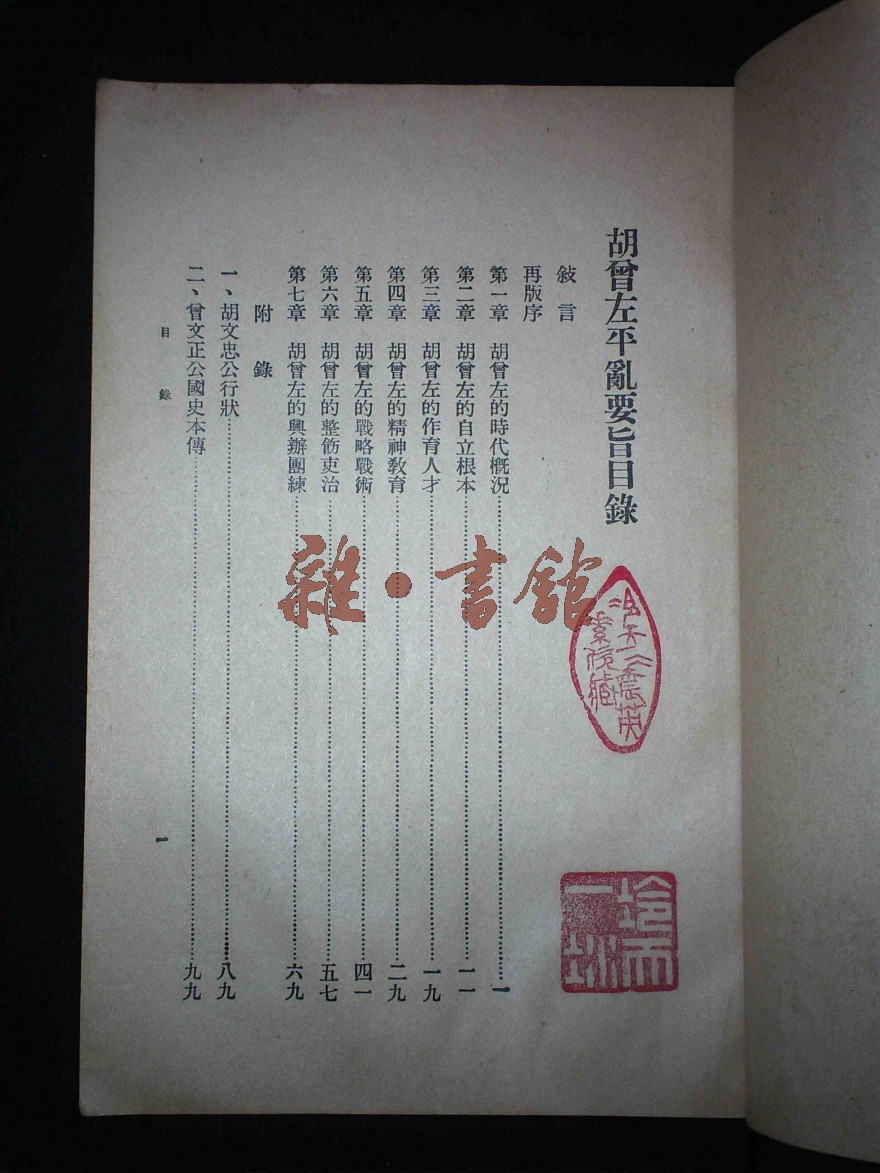 胡曾左平亂要旨目錄
敍言
再版序
第一章 胡曾左的時代槪況……一
第二章 胡曾左的自立根本……一一
第三章 胡曾左的作育人才……一九
第四章 胡曾左的精神敎育……二九
第五章 胡曾左的戰略戰術……四一
第六章 胡曾左的整飭吏治……五七
第七章 胡曾左的興辦團練……六九
附錄
一、胡文忠公行狀……八九
二、曾文正公國史本傳……九九
目錄
一
雜·書館